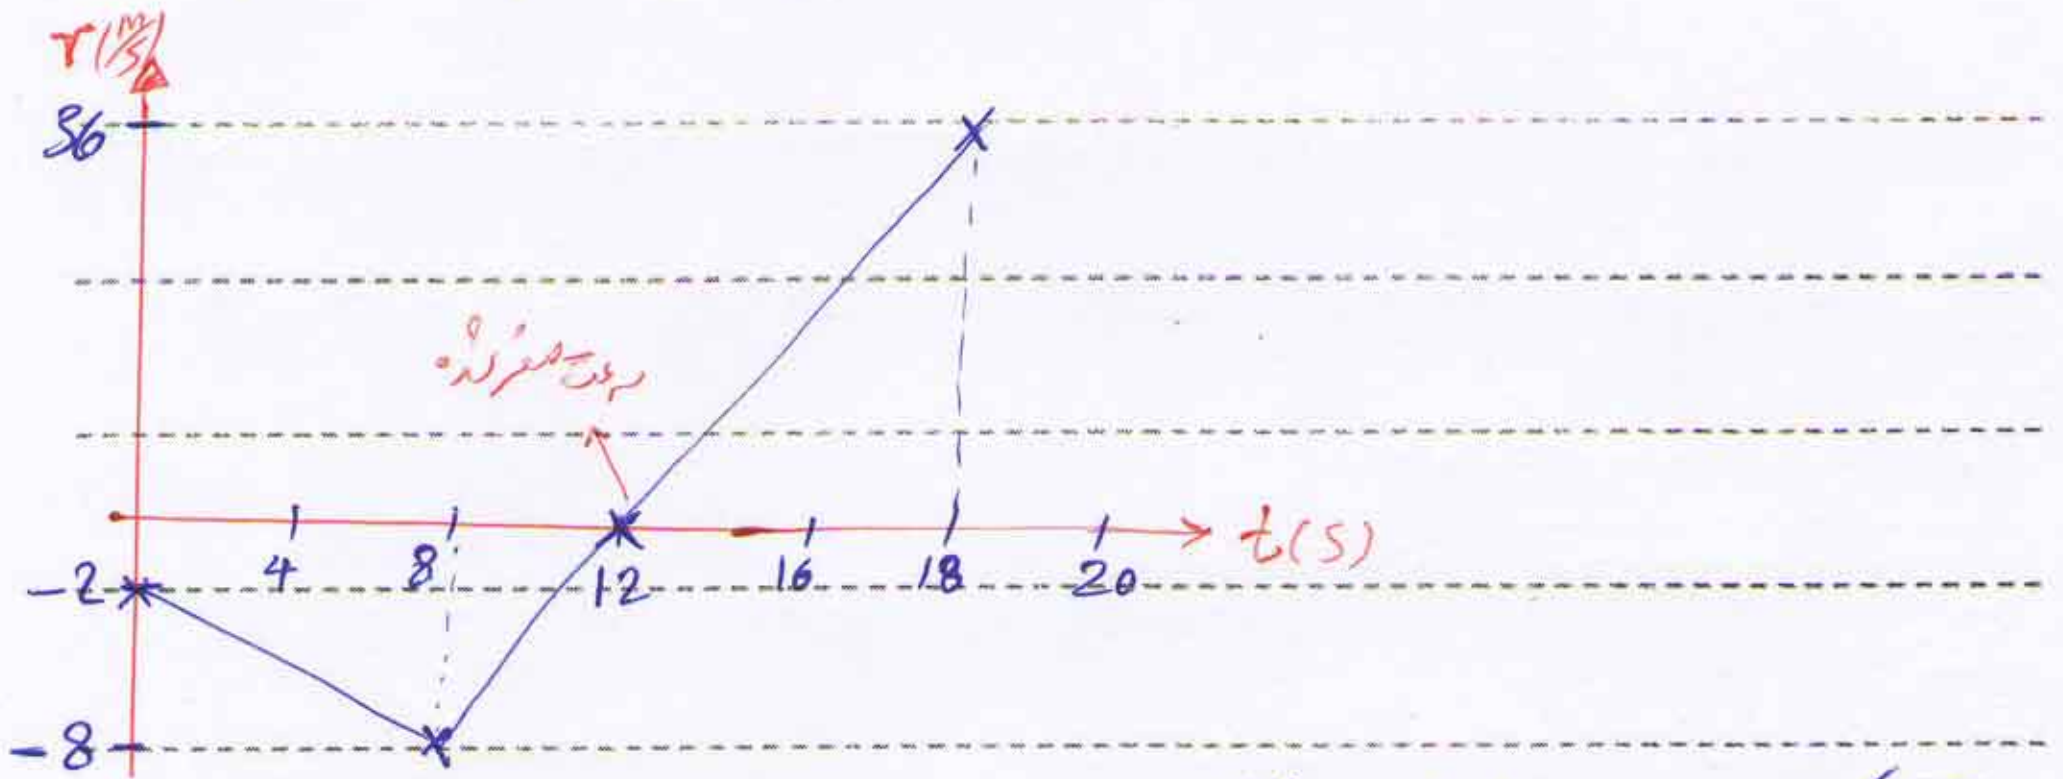 v(m/s)
36
سرعت صفر شده
4 8 12 16 18 20 t(s)
-2
-8